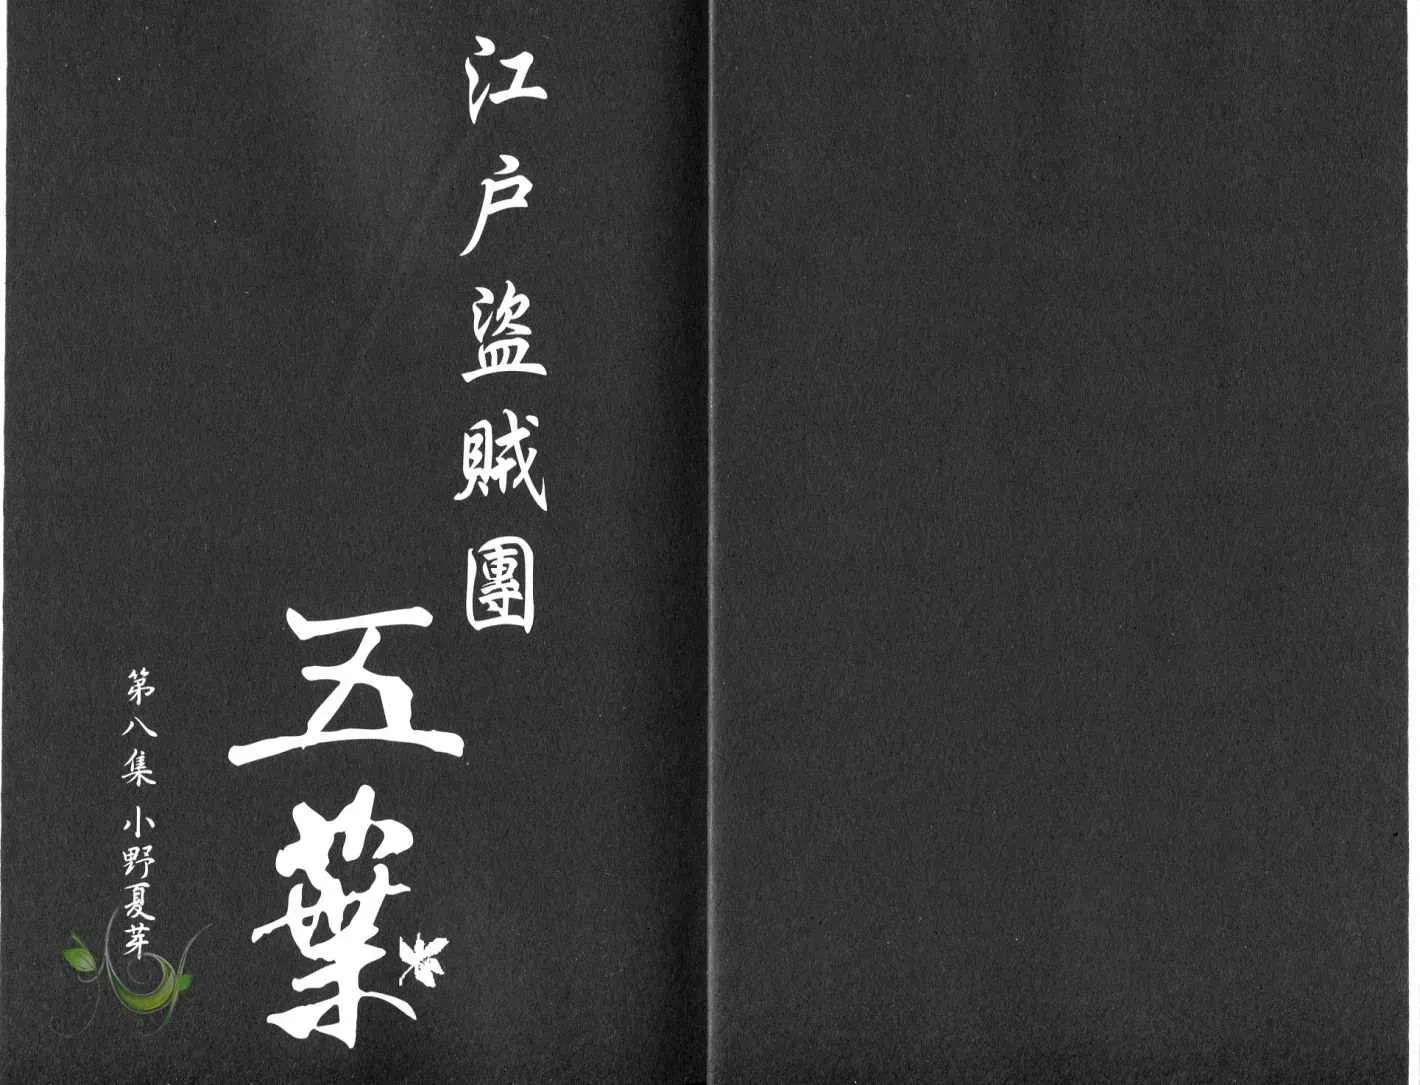 江戶盜賊團
五葉
第八集 小野夏芽